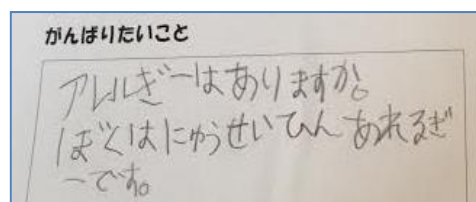 がんばりたいこと
アレルぎーはありますか。
ぼくはにゅうせいひん あれるぎ
ーです。